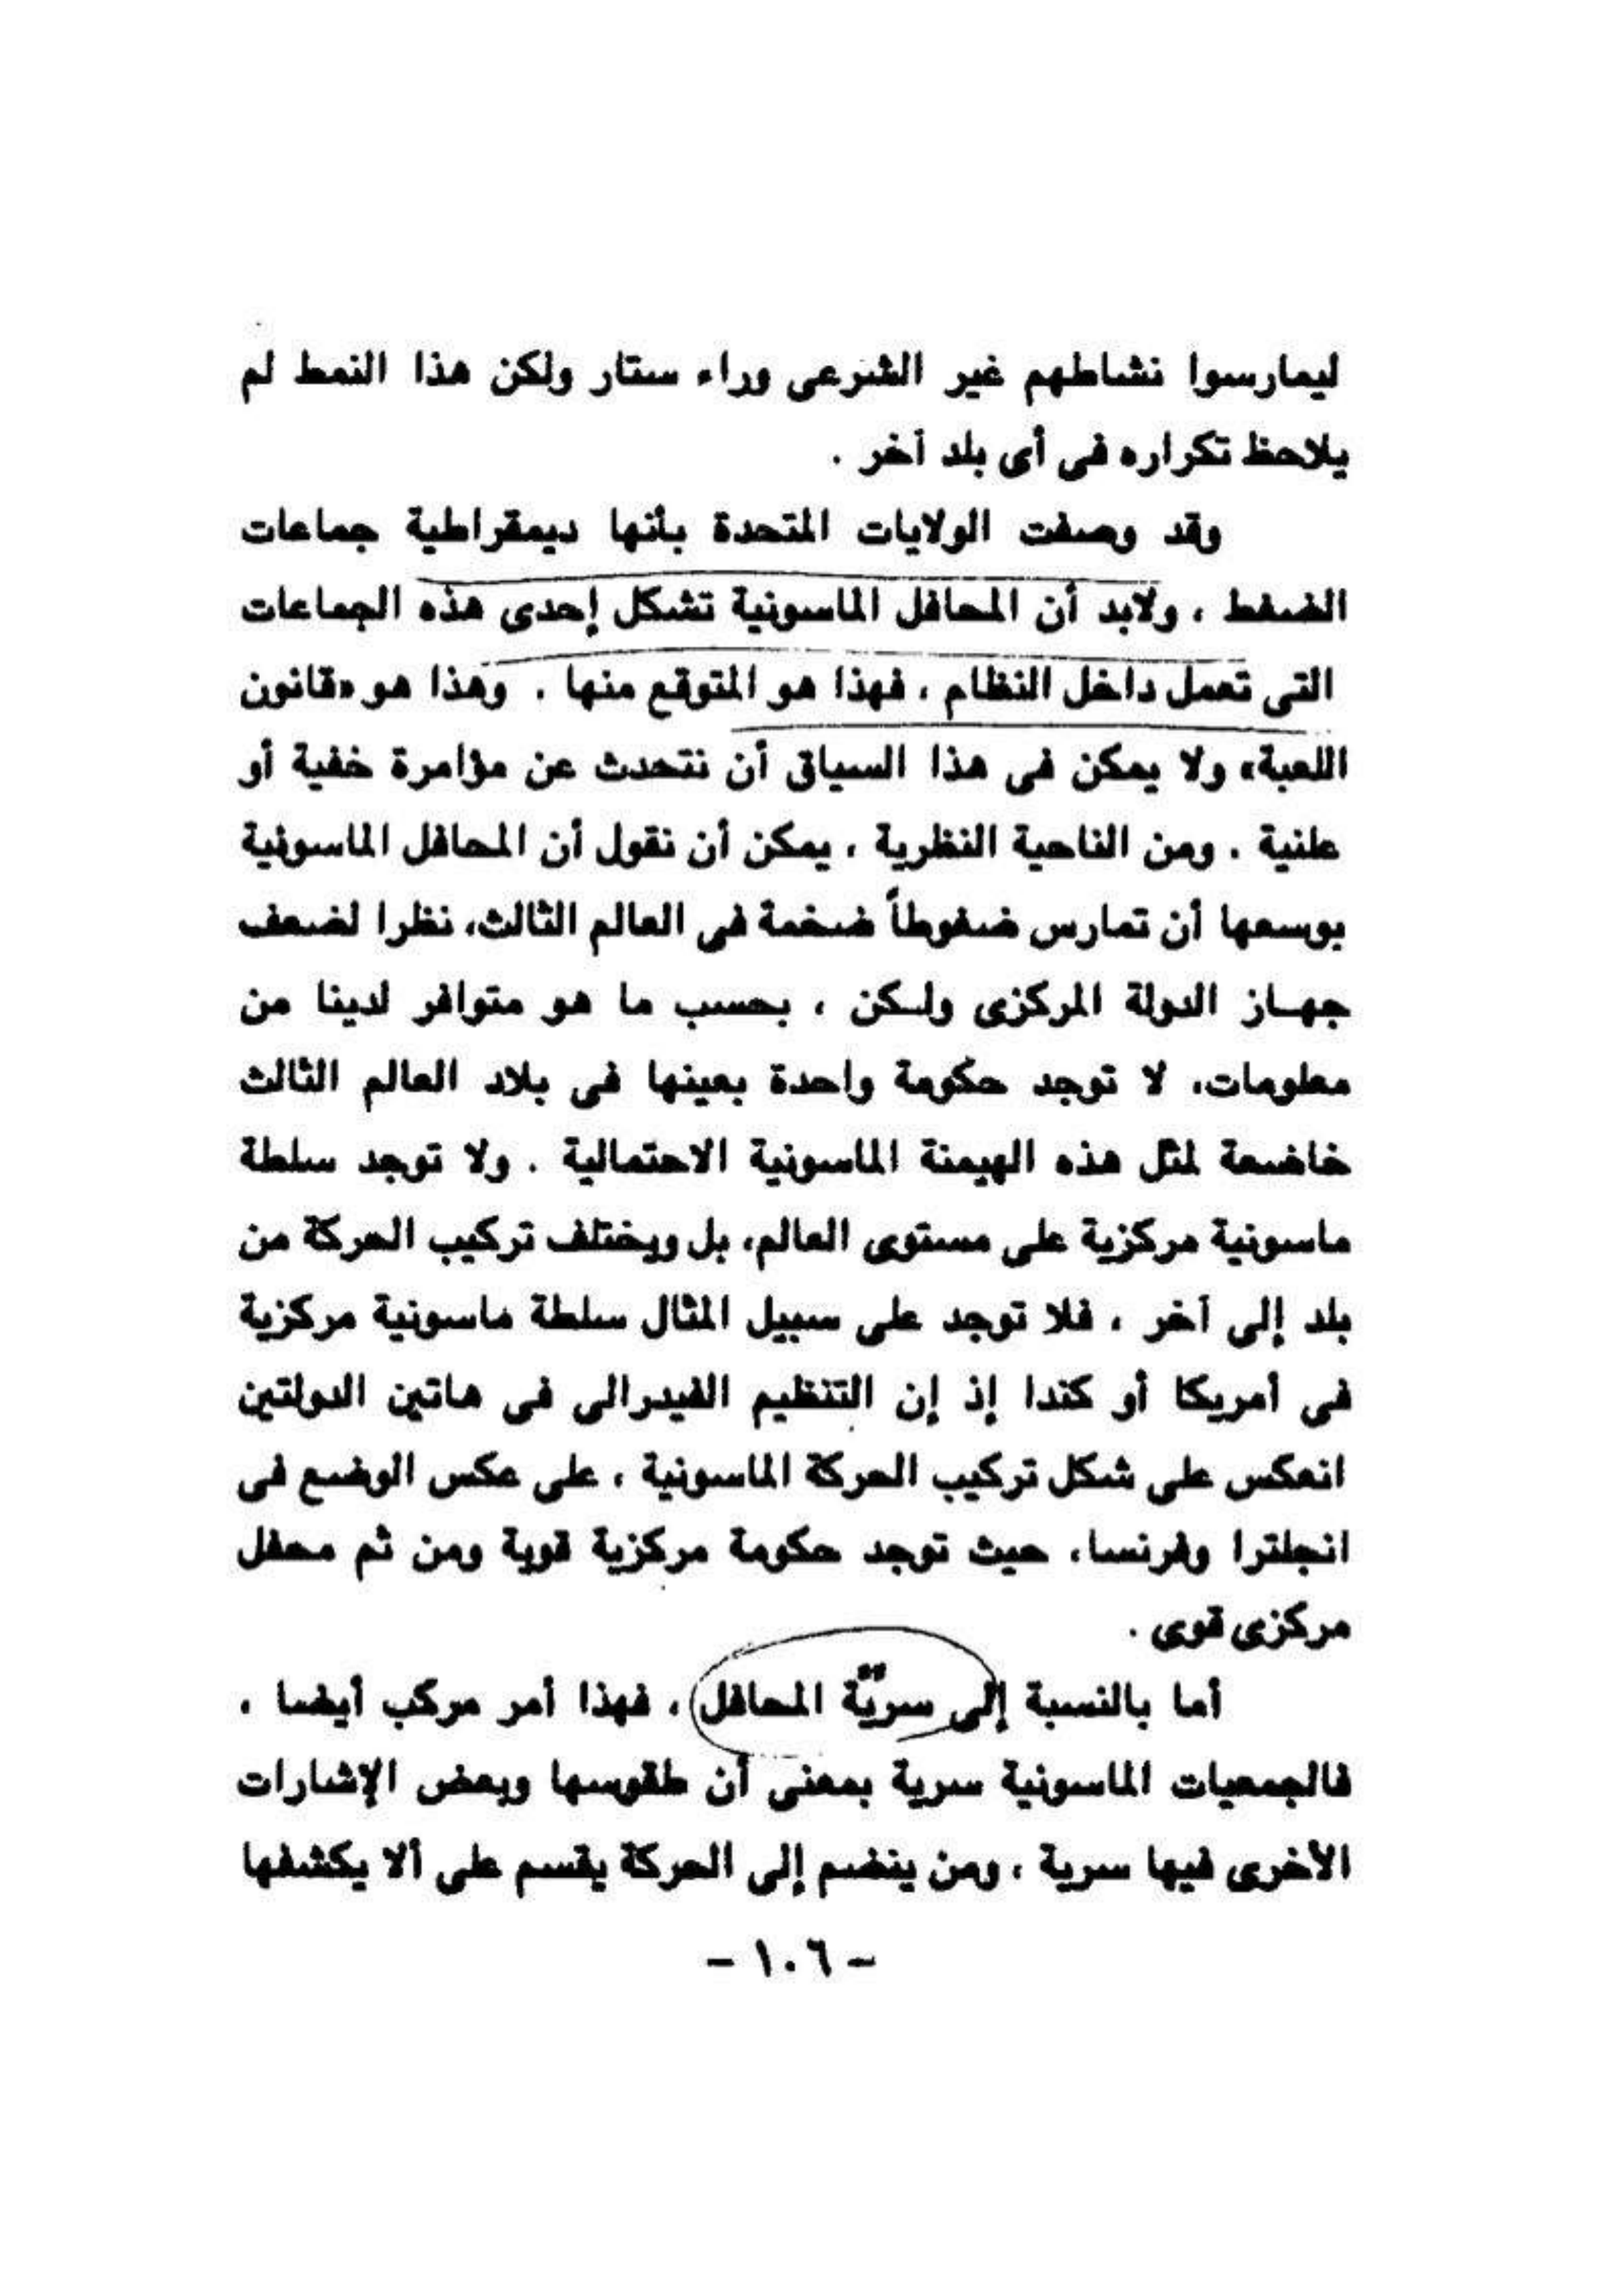 ليمارسوا نشاطهم غير الشرعى وراء ستار ولكن هذا النمط لم
يلاحظ تكراره فى أى بلد آخر .
وقد وصفت الولايات المتحدة بأنها ديمقراطية جماعات
الضغط ، ولابد أن المحافل الماسونية تشكل إحدى هذه الجماعات
التى تعمل داخل النظام ، فهذا هو المتوقع منها . وهذا هو «قانون
اللعبة» ولا يمكن فى هذا السياق أن نتحدث عن مؤامرة خفية أو
علنية . ومن الناحية النظرية ، يمكن أن نقول أن المحافل الماسونية
بوسعها أن تمارس ضغوطاً ضخمة فى العالم الثالث، نظرا لضعف
جهـاز الدولة المركزى ولـكن ، بحسب ما هو متوافر لدينا من
معلومات، لا توجد حكومة واحدة بعينها فى بلاد العالم الثالث
خاضعة لمثل هذه الهيمنة الماسونية الاحتمالية . ولا توجد سلطة
ماسونية مركزية على مستوى العالم، بل ويختلف تركيب الحركة من
بلد إلى آخر ، فلا توجد على سبيل المثال سلطة ماسونية مركزية
فى أمريكا أو كندا إذ إن التنظيم الفيدرالى فى هاتين الدولتين
انعكس على شكل تركيب الحركة الماسونية ، على عكس الوضع فى
انجلترا وفرنسا، حيث توجد حكومة مركزية قوية ومن ثم محفل
مركزى قوى .
أما بالنسبة إلى سريّة المحافل ، فهذا أمر مركب أيضا ،
فالجمعيات الماسونية سرية بمعنى أن طقوسها وبعض الإشارات
الأخرى فيها سرية ، ومن ينضم إلى الحركة يقسم على ألا يكشفها
- ١٠٦ -